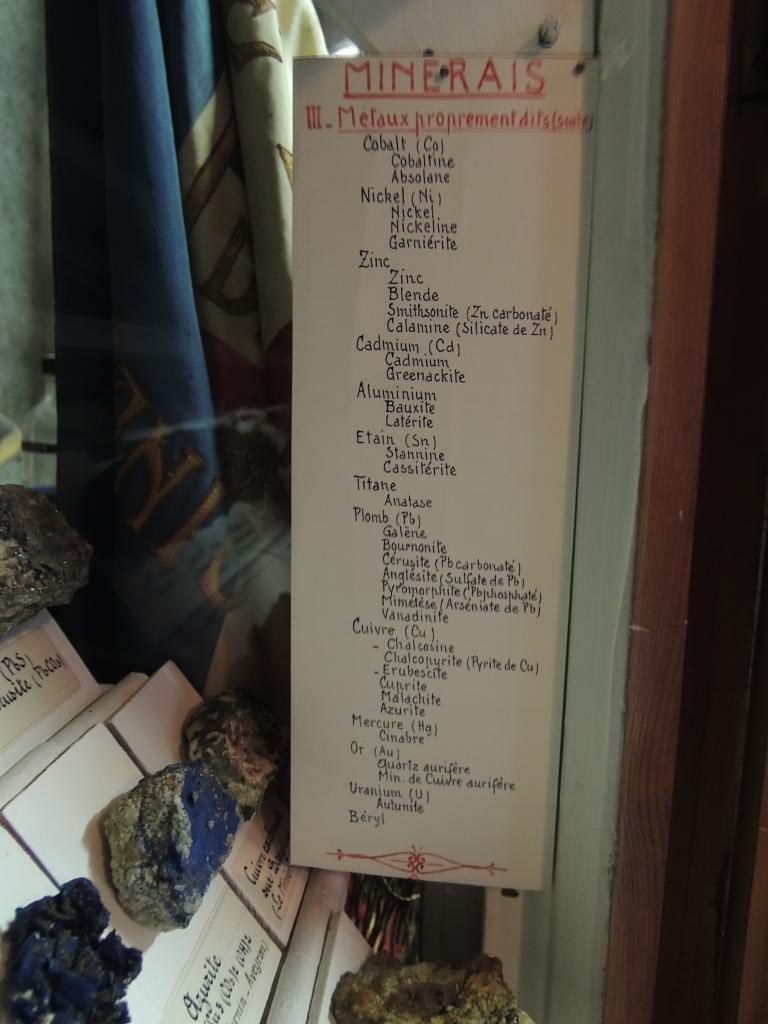 MINERAIS
III - Métaux proprement dits (suite)
Cobalt (Co)
Cobaltine
Absolane
Nickel (Ni)
Nickel
Nickeline
Garniérite
Zinc
Zinc
Blende
Smithsonite (Zn carbonaté)
Calamine (Silicate de Zn)
Cadmium (Cd)
Cadmium
Greenackite
Aluminium
Bauxite
Latérite
Etain (Sn)
Stannine
Cassitérite
Titane
Anatase
Plomb (Pb)
Galène
Bournonite
Cérusite (Pb carbonaté)
Anglésite (Sulfate de Pb)
Pyromorphite (Pb phosphaté)
Mimétèse (Arséniate de Pb)
Vanadinite
Cuivre (Cu)
- Chalcosine
Chalcopyrite (Pyrite de Cu)
- Erubescite
Cuprite
Malachite
Azurite
Mercure (Hg)
Cinabre
Or (Au)
Quartz aurifère
Min. de Cuivre aurifère
Uranium (U)
Autunite
Béryl
(PbS)
(PbCO3)
Cuivre
sur
Azurite
(CO3)2 (OH)2
Aveyron)